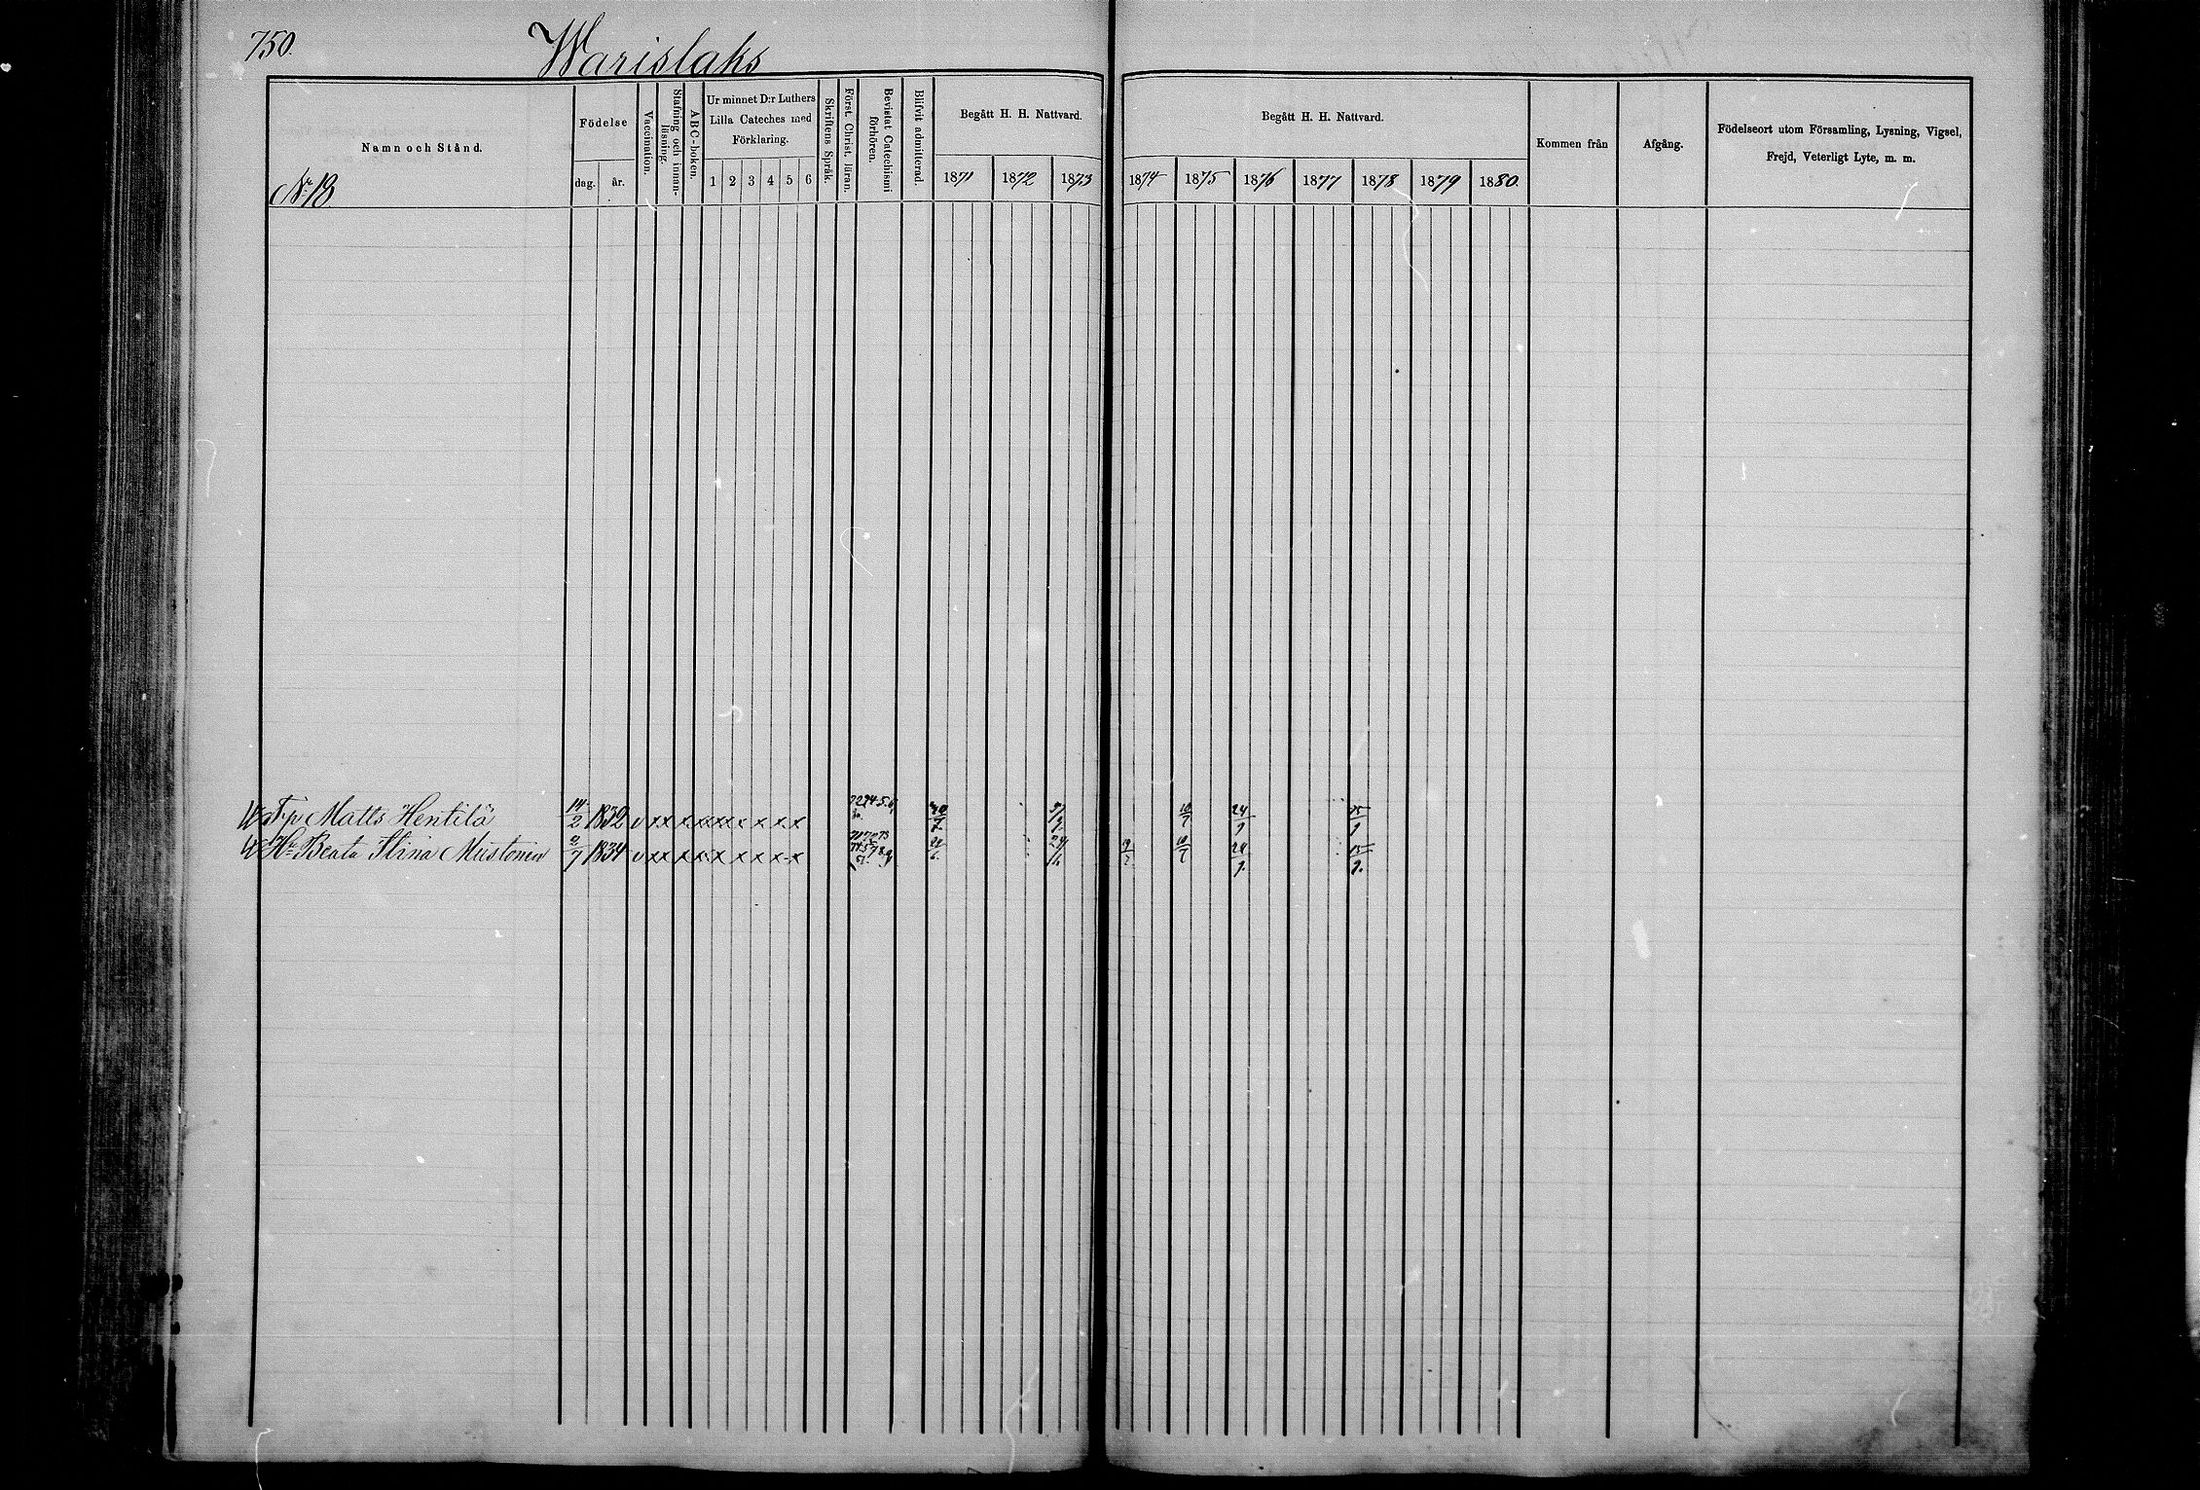 750.
Warislaks
Namn och Stånd.
Födelse
dag.
år.
Vaccination.
Stafning och innan-
läsning.
ABC-boken.
Ur minnet D:r Luthers
Lilla Cateches med
Förklaring.
1 2 3 4 5 6
Skriftens Språk.
Först. Christ. läran.
Bevistat Catechismi
förhören.
Blifvit admitterad.
Begått H. H. Nattvard.
1871 1872 1873
Begått H. H. Nattvard.
1874 1875 1876 1877 1878 1879 1880.
Kommen från
Afgång.
Födelseort utom Församling, Lysning, Vigsel,
Frejd, Veterligt Lyte, m. m.
No 18
Matts Hentilä 14/2 1832 v xx x x x x x 24/9
Hu Beata Stina Mustonen 1834 v xx x x x x x x 24/9